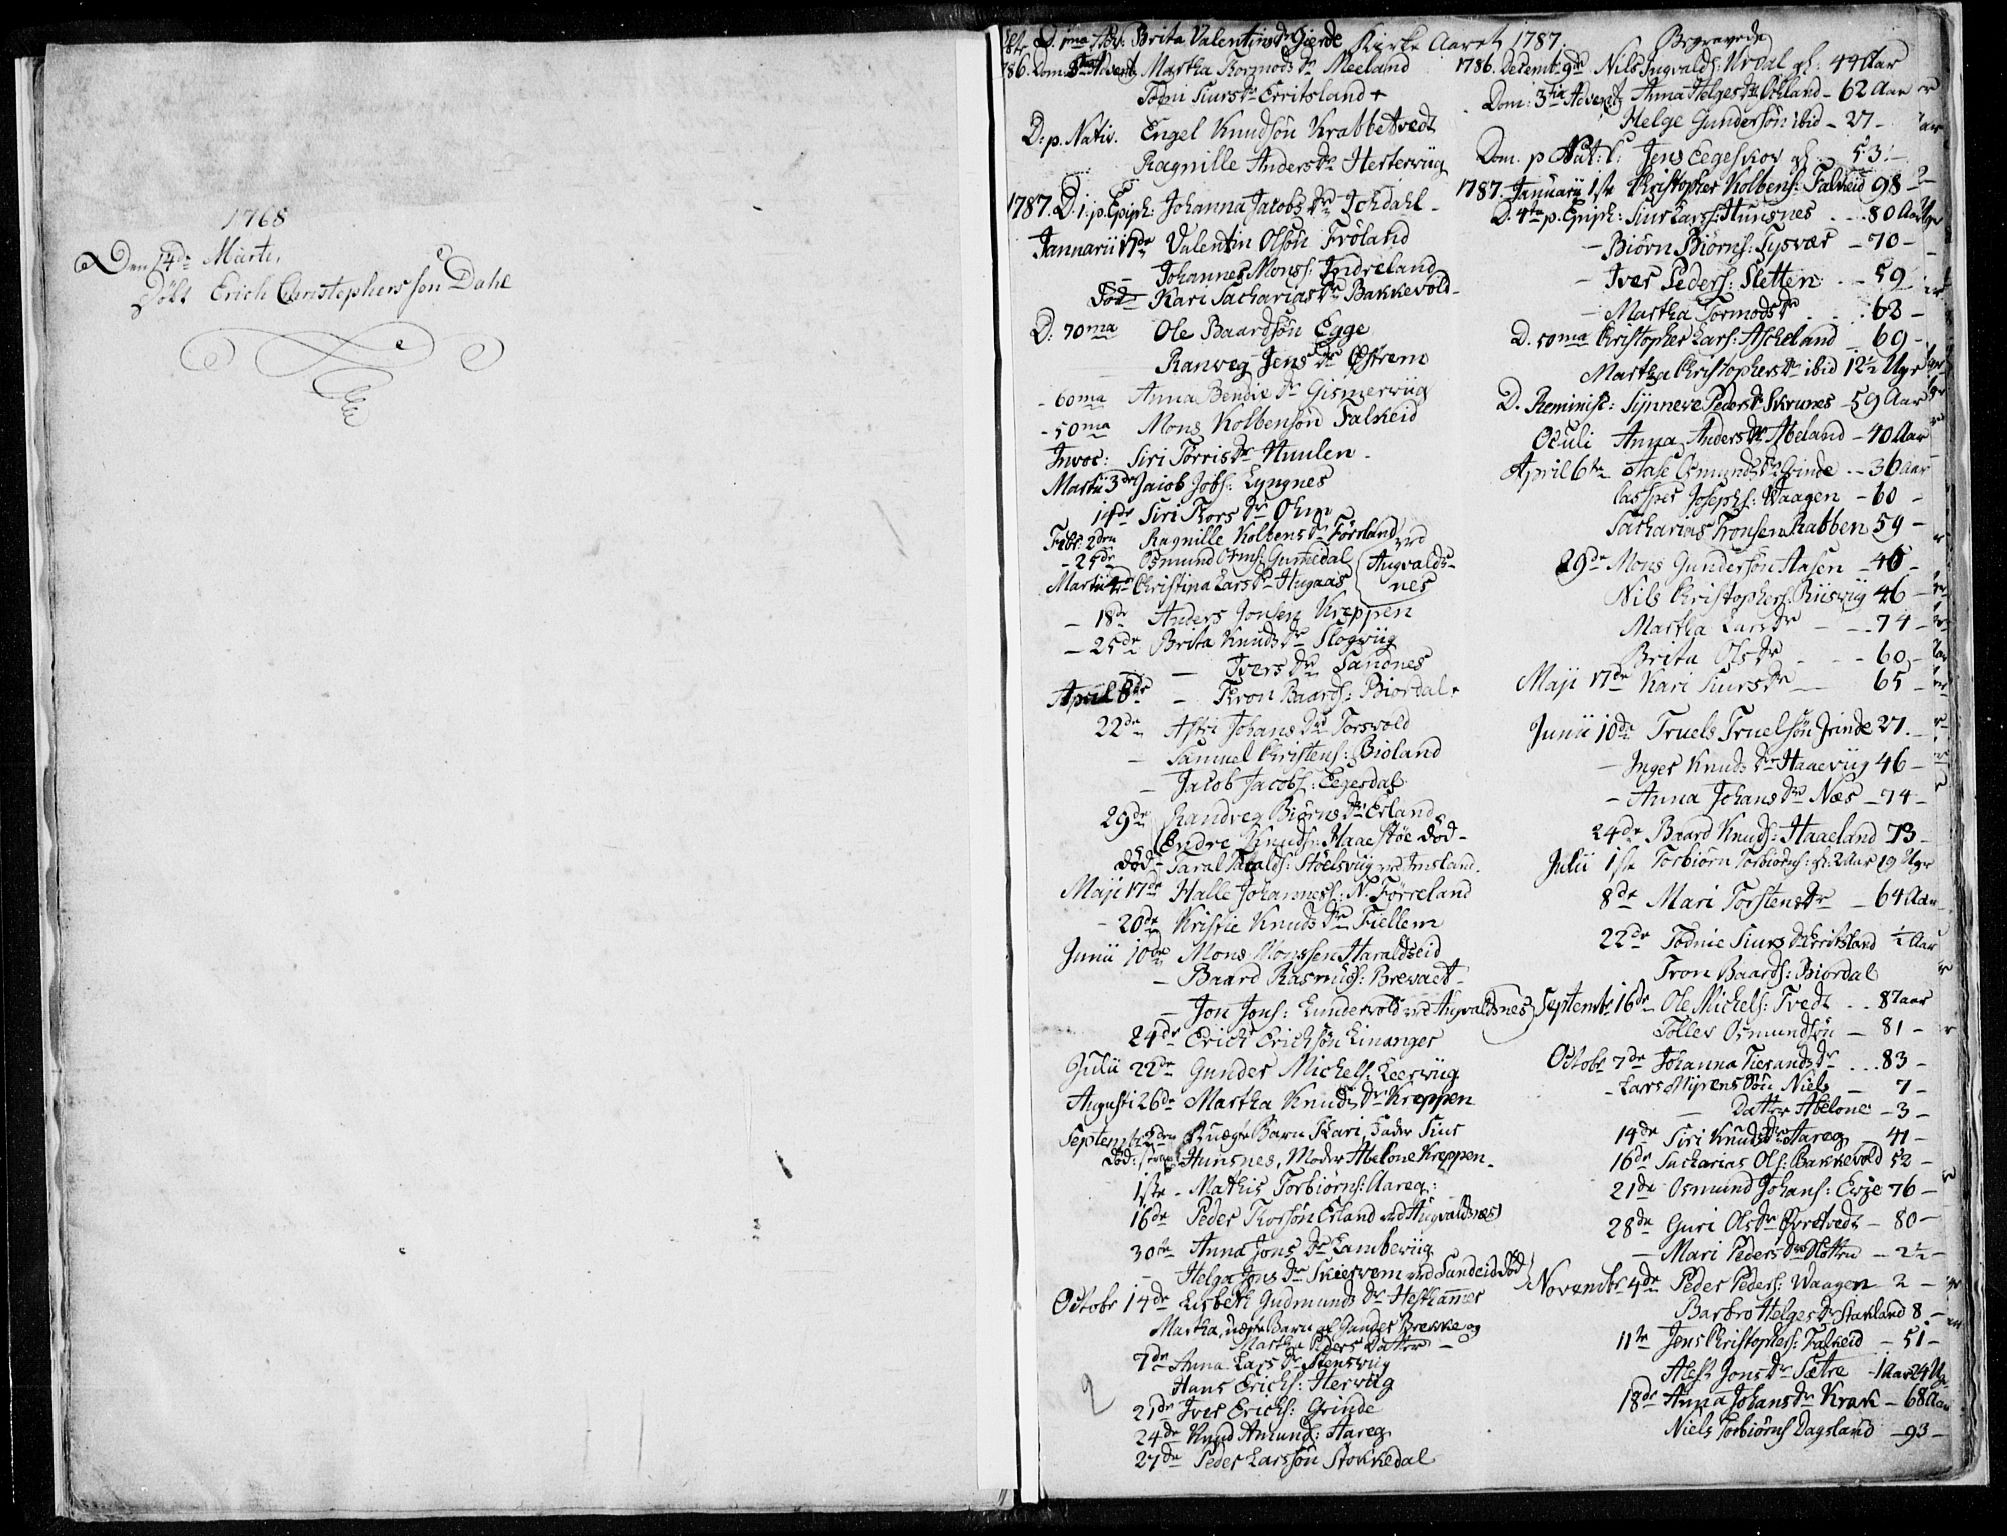 1768
Den 4de Marti,
Döbt Erich Christophersson Dahl
D. 1ma Adv: Brita Valentins Dr Gierde Kirke Aaret 1787.
86. Dom: Advent Martha Tormods Dr Meeland
Todni Siurs Dr Erritsland +
D: p. Nativ. Engel Knudsön Krabbetvedt
Ragnille Anders Dr Hertervig
1787. D. 1. p. Epiph: Johanna Jacobs Dr Tohdahl
Januarii 17de Valentin Olsön Fröland
Johannes Monss: Indreland
Död Kari Sacharias Dr Bakkevold
D: 70ma Ole Baardsön Egge
Ranveg Jens Dr Östrem
- 60ma Anna Bendix Dr Gismerviig
- 50ma Mons Kolbensön Falkeid
Invoc: Siri Torris Dr Huulen
Martii 3de Jacob Jobs: Lyngnes
14de Siri Thors Dr
Febr: 2den Ragnille Kolbens Dr Förrland ved
- 25de Osmund Orms: Gumedal Augvalds-
Martii 4de Christina Lars Dr Hagaas nes
- 18de Anders Jonsen Kreppen
- 25de Brita Knuds Dr Slogviig
- Ivers Dr Sandnes
April 8de - Tron Baards: Biordal +
22de Astri Johans Dr Torsvold
- Samuel Christens: Bioland
- Jacob Jacobs: Eegesdal
29de Randveg Biörns Dr Erland
Endre Knuds: Haaestöe död -
död - Taral Taralds: Stöelsviig ved Imsland.
Maji 17de Halle Johanness: N. Förreland
- 20de Kristie Knuds Dr Fiellem
Junii 10de Mons Monssen Haraldseid
- Baard Rasmuss: Brevaet
- Jon Jons: Lundervold ved Augvaldsnes
24de Erich Erichsön Linanger
Julii 22de Gunder Michels: Leerviig
Augusti 26de Martha Knuds Dr Kreppen
Septembr 2den Uægte Barn Kari, Fader Siur
död: Hunsnes, Moder Abelone Kreppen.
1ste - Mathis Torbiörns: Aareg:
16de Peder Thorsön Erland ved Augvaldsnes
30te Anna Jons Dr Lambeviig
- Helga Jons Dr Skiervem ved Sandeid död
Octobr 14de Lisbeth Gudmunds Dr Hesthammer
Martha, uægte Barn af Gunder Brekke og
Martha Peders Datter -
7de Anna Lars Dr Stensviig
Hans Erichs: Hervig
21de Iver Erichs: Grinde
24de Knud Amunds: Aareg
27de Peder Larssön Stokkedal
2
Begravede
1786. Decembr: 9de Nils Ingvalds: Urdal gl: 44 Aar
Dom: 3tia Advent Anna Helges Dr Öchland - 62 Aar
Helge Gundersön ibid - 27 -
Dom. p Nat: C: Jens Eegeskov gl. 53 -
1787. Januarii 1ste Christopher Kolbens: Falkeid 98
D. 4ta p. Epiph: Siur Larss: Hunsnes - - 80 Aar
- Biörn Biörns: Tysvær - 70 -
- Iver Peders: Sletten - 59
- Martha Tormods Dr - 62
D. 50ma Christopher Lars: Ascheland - 69 -
Martha Christophers Dr ibid 12½ Uger
D. Reminisc: Synneve Peders Dr Skrunes - 59 Aar
Oculi Anna Anders Dr Abeland - 40 Aar
April 6te Aase Osmunds Dr Grinde - 36 Aar
Casper Josephs: Waagen - 60 -
Sacharias Tronsen Rabben 59 -
29de Mons Gundersön Aasen - 46 -
Nils Christophers: Riisviig 46 -
Martha Lars Dr - - 74 -
Brita Ols Dr - - 60 -
Maji 17de Kari Siurs Dr - 65 -
Junii 10de Truels Truelsön Grinde 27. -
- Inger Knuds Dr Haaeviig 46 -
- Anna Johans Dr Næs - 74 -
24de Baard Knuds: Haaeland 73 -
Julii 1ste Torbiörn Torbiörns: gl. 2 Aar 19 Uger
8de Mari Torstens Dr - 64 Aar
22de Todnie Siurs Dr Erritsland ½ Aar
Tron Baards: Biordal
Septembr. 16de Ole Michels: Tvedt - 87 aar
Tollev Osmundsön - 81 -
Octobr 7de Johanna Tierands Dr - 83 -
- Lars Myrens Sön Niels - 7 -
- Datter Abelone - 3 -
14de Siri Knuds Dr Aareg 41 -
16de Sacharias Ols: Bakkevold 52 -
21de Osmund Johans: Erge 76 -
28de Guri Ols Dr Övretvedt - 80 -
- Mari Peders Dr Sletten - 2½ -
Novembr 4de Peder Peders: Waagen 2 -
Barbro Helges Dr Stakland 8. -
11te Jens Christophers: Falkeid - 51 -
Jons Dr Sætre - 1 Aar 24 Ug.
18de Anna Johans Dr Krak - 68 Aar
Niels Torbiörns Dagsland - 93 -